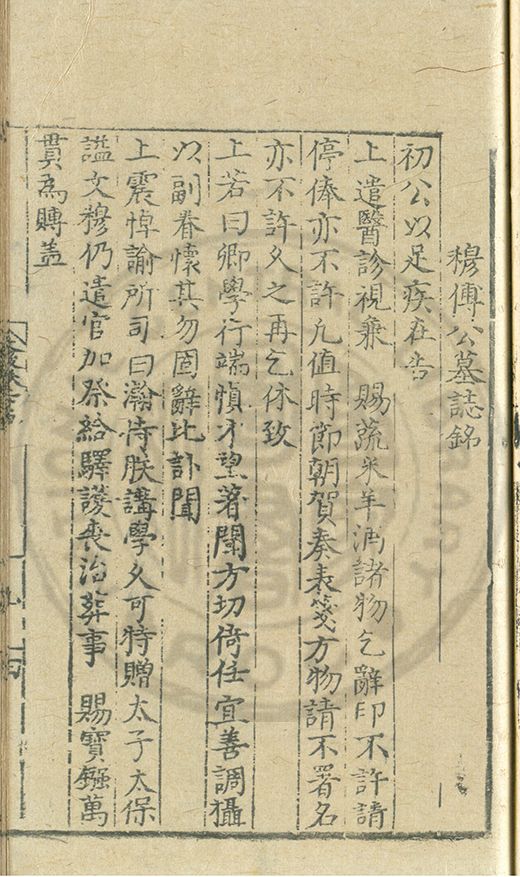 穆傅公墓誌銘
初公以足疾在告
上遣醫診視兼 賜蔬米羊酒諸物乞辭印不許請
停俸亦不許凡值時節朝賀奏表箋方物請不署名
亦不許久之再乞休致
上若曰卿學行端慎才望著聞方切倚任宜善調攝
以副眷懷其勿固辭比訃聞
上震悼諭所司曰瀚侍朕講學久可特贈太子太保
謚文穆仍遣官加祭給驛護喪治葬事 賜寶鏹萬
貫為賻葢